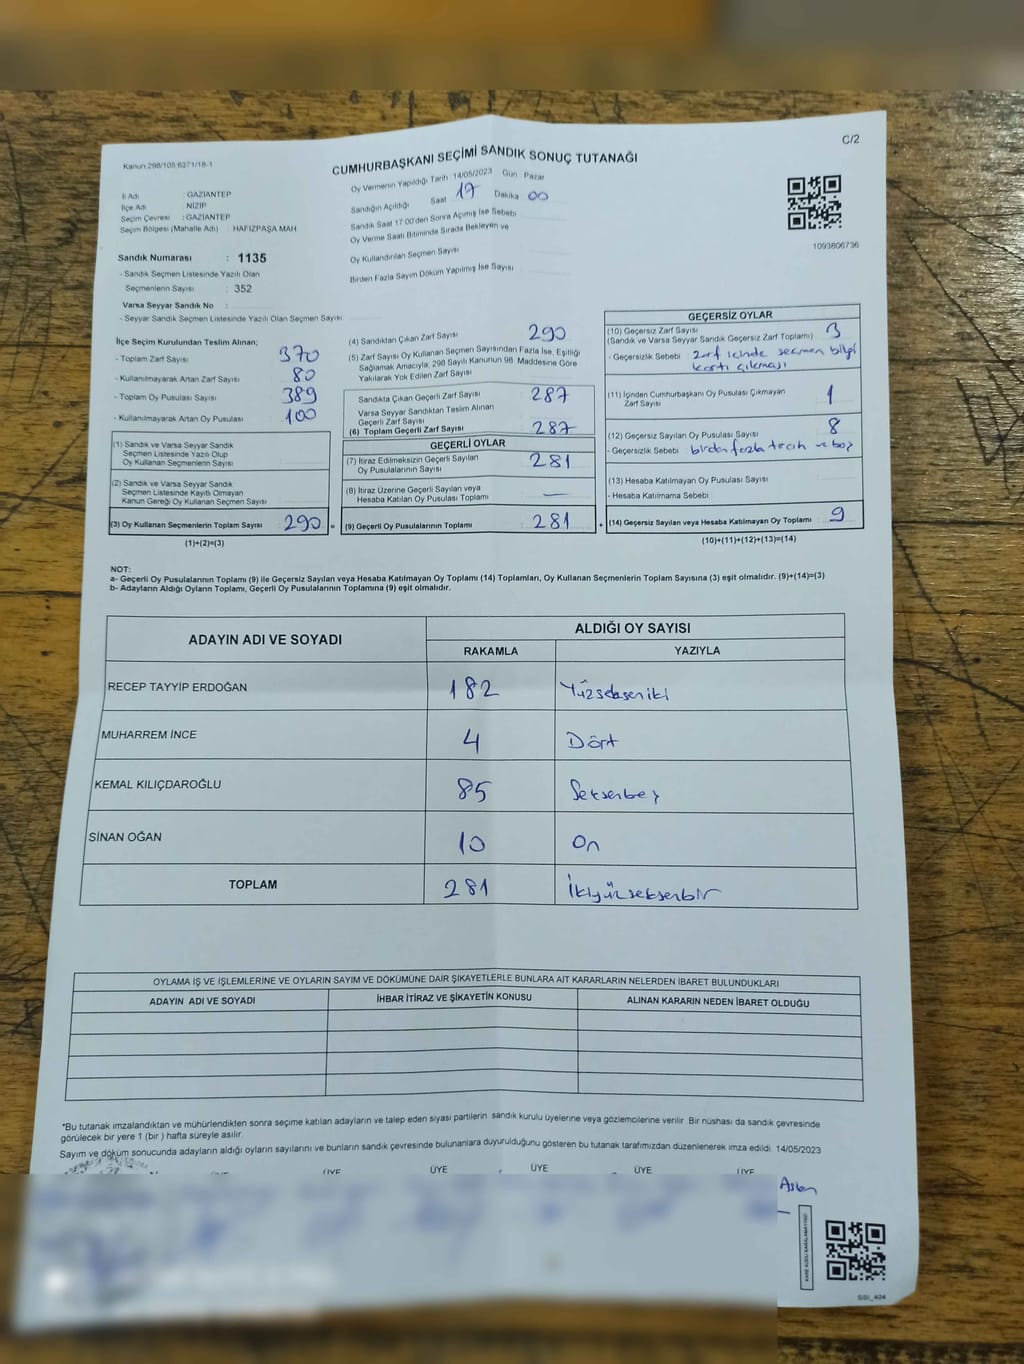 C/2
Kanun 298/105,6271/18-1
CUMHURBAŞKANI SEÇİMİ SANDIK SONUÇ TUTANAĞI
İl Adı : GAZİANTEP
İlçe Adı : NİZİP
Seçim Çevresi : GAZİANTEP
Seçim Bölgesi (Mahalle Adı) HAFIZPAŞA MAH
Oy Vermenin Yapıldığı Tarih 14/05/2023 Gün : Pazar
Sandığın Açıldığı Saat 17 Dakika 00
Sandık Saat 17:00'den Sonra Açımış İse Sebebi
Oy Verme Saati Bitiminde Sırada Bekleyen ve
Oy Kullandırılan Seçmen Sayısı
Birden Fazla Sayım Döküm Yapılmış İse Sayısı
1093806736
Sandık Numarası : 1135
- Sandık Seçmen Listesinde Yazılı Olan
Seçmenlerin Sayısı : 352
Varsa Seyyar Sandık No :
- Seyyar Sandık Seçmen Listesinde Yazılı Olan Seçmen Sayısı:
İlçe Seçim Kurulundan Teslim Alınan;
- Toplam Zarf Sayısı 370
- Kullanılmayarak Artan Zarf Sayısı 80
- Toplam Oy Pusulası Sayısı 389
- Kullanılmayarak Artan Oy Pusulası 100
(1) Sandık ve Varsa Seyyar Sandık
Seçmen Listesinde Yazılı Olup
Oy Kullanan Seçmenlerin Sayısı
(2) Sandık ve Varsa Seyyar Sandık
Seçmen Listesinde Kayıtlı Olmayan
Kanun Gereği Oy Kullanan Seçmen Sayısı
(3) Oy Kullanan Seçmenlerin Toplam Sayısı 290 =
(1)+(2)=(3)
(4) Sandıktan Çıkan Zarf Sayısı 290
(5) Zarf Sayısı Oy Kullanan Seçmen Sayısından Fazla İse, Eşitliği
Sağlamak Amacıyla, 298 Sayılı Kanunun 98. Maddesine Göre
Yakılarak Yok Edilen Zarf Sayısı
Sandıkta Çıkan Geçerli Zarf Sayısı 287
Varsa Seyyar Sandıktan Teslim Alınan
Geçerli Zarf Sayısı
(6) Toplam Geçerli Zarf Sayısı 287
GEÇERLİ OYLAR
(7) İtiraz Edilmeksizin Geçerli Sayılan
Oy Pusulalarının Sayısı 281
(8) İtiraz Üzerine Geçerli Sayılan veya
Hesaba Katılan Oy Pusulası Toplamı —
(9) Geçerli Oy Pusulalarının Toplamı 281 +
GEÇERSİZ OYLAR
(10) Geçersiz Zarf Sayısı 3
(Sandık ve Varsa Seyyar Sandık Geçersiz Zarf Toplamı)
- Geçersizlik Sebebi zarf içinde seçmen bilgi
kartı çıkması
(11) İçinden Cumhurbaşkanı Oy Pusulası Çıkmayan
Zarf Sayısı 1
(12) Geçersiz Sayılan Oy Pusulası Sayısı 8
- Geçersizlik Sebebi birden fazla tercih ve boş
(13) Hesaba Katılmayan Oy Pusulası Sayısı
- Hesaba Katılmama Sebebi
(14) Geçersiz Sayılan veya Hesaba Katılmayan Oy Toplamı 9
(10)+(11)+(12)+(13)=(14)
NOT:
a- Geçerli Oy Pusulalarının Toplamı (9) ile Geçersiz Sayılan veya Hesaba Katılmayan Oy Toplamı (14) Toplamları, Oy Kullanan Seçmenlerin Toplam Sayısına (3) eşit olmalıdır. (9)+(14)=(3)
b- Adayların Aldığı Oyların Toplamı, Geçerli Oy Pusulalarının Toplamına (9) eşit olmalıdır.
ADAYIN ADI VE SOYADI
ALDIĞI OY SAYISI
RAKAMLA YAZIYLA
RECEP TAYYİP ERDOĞAN 182 Yüzsekseniki
MUHARREM İNCE 4 Dört
KEMAL KILIÇDAROĞLU 85 Seksenbeş
SİNAN OĞAN 10 On
TOPLAM 281 İkiyüzseksenbir
OYLAMA İŞ VE İŞLEMLERİNE VE OYLARIN SAYIM VE DÖKÜMÜNE DAİR ŞİKAYETLERLE BUNLARA AİT KARARLARIN NELERDEN İBARET BULUNDUKLARI
ADAYIN ADI VE SOYADI İHBAR İTİRAZ VE ŞİKAYETİN KONUSU ALINAN KARARIN NEDEN İBARET OLDUĞU
*Bu tutanak imzalandıktan ve mühürlendikten sonra seçime katılan adayların ve talep eden siyasi partilerin sandık kurulu üyelerine veya gözlemcilerine verilir. Bir nüshası da sandık çevresinde
görülecek bir yere 1 (bir) hafta süreyle asılır.
Sayım ve döküm sonucunda adayların aldığı oyların sayılarını ve bunların sandık çevresinde bulunanlara duyurulduğunu gösteren bu tutanak tarafımızdan düzenlenerek imza edildi. 14/05/2023
ÜYE ÜYE ÜYE ÜYE ÜYE
Aslan
SSI_404